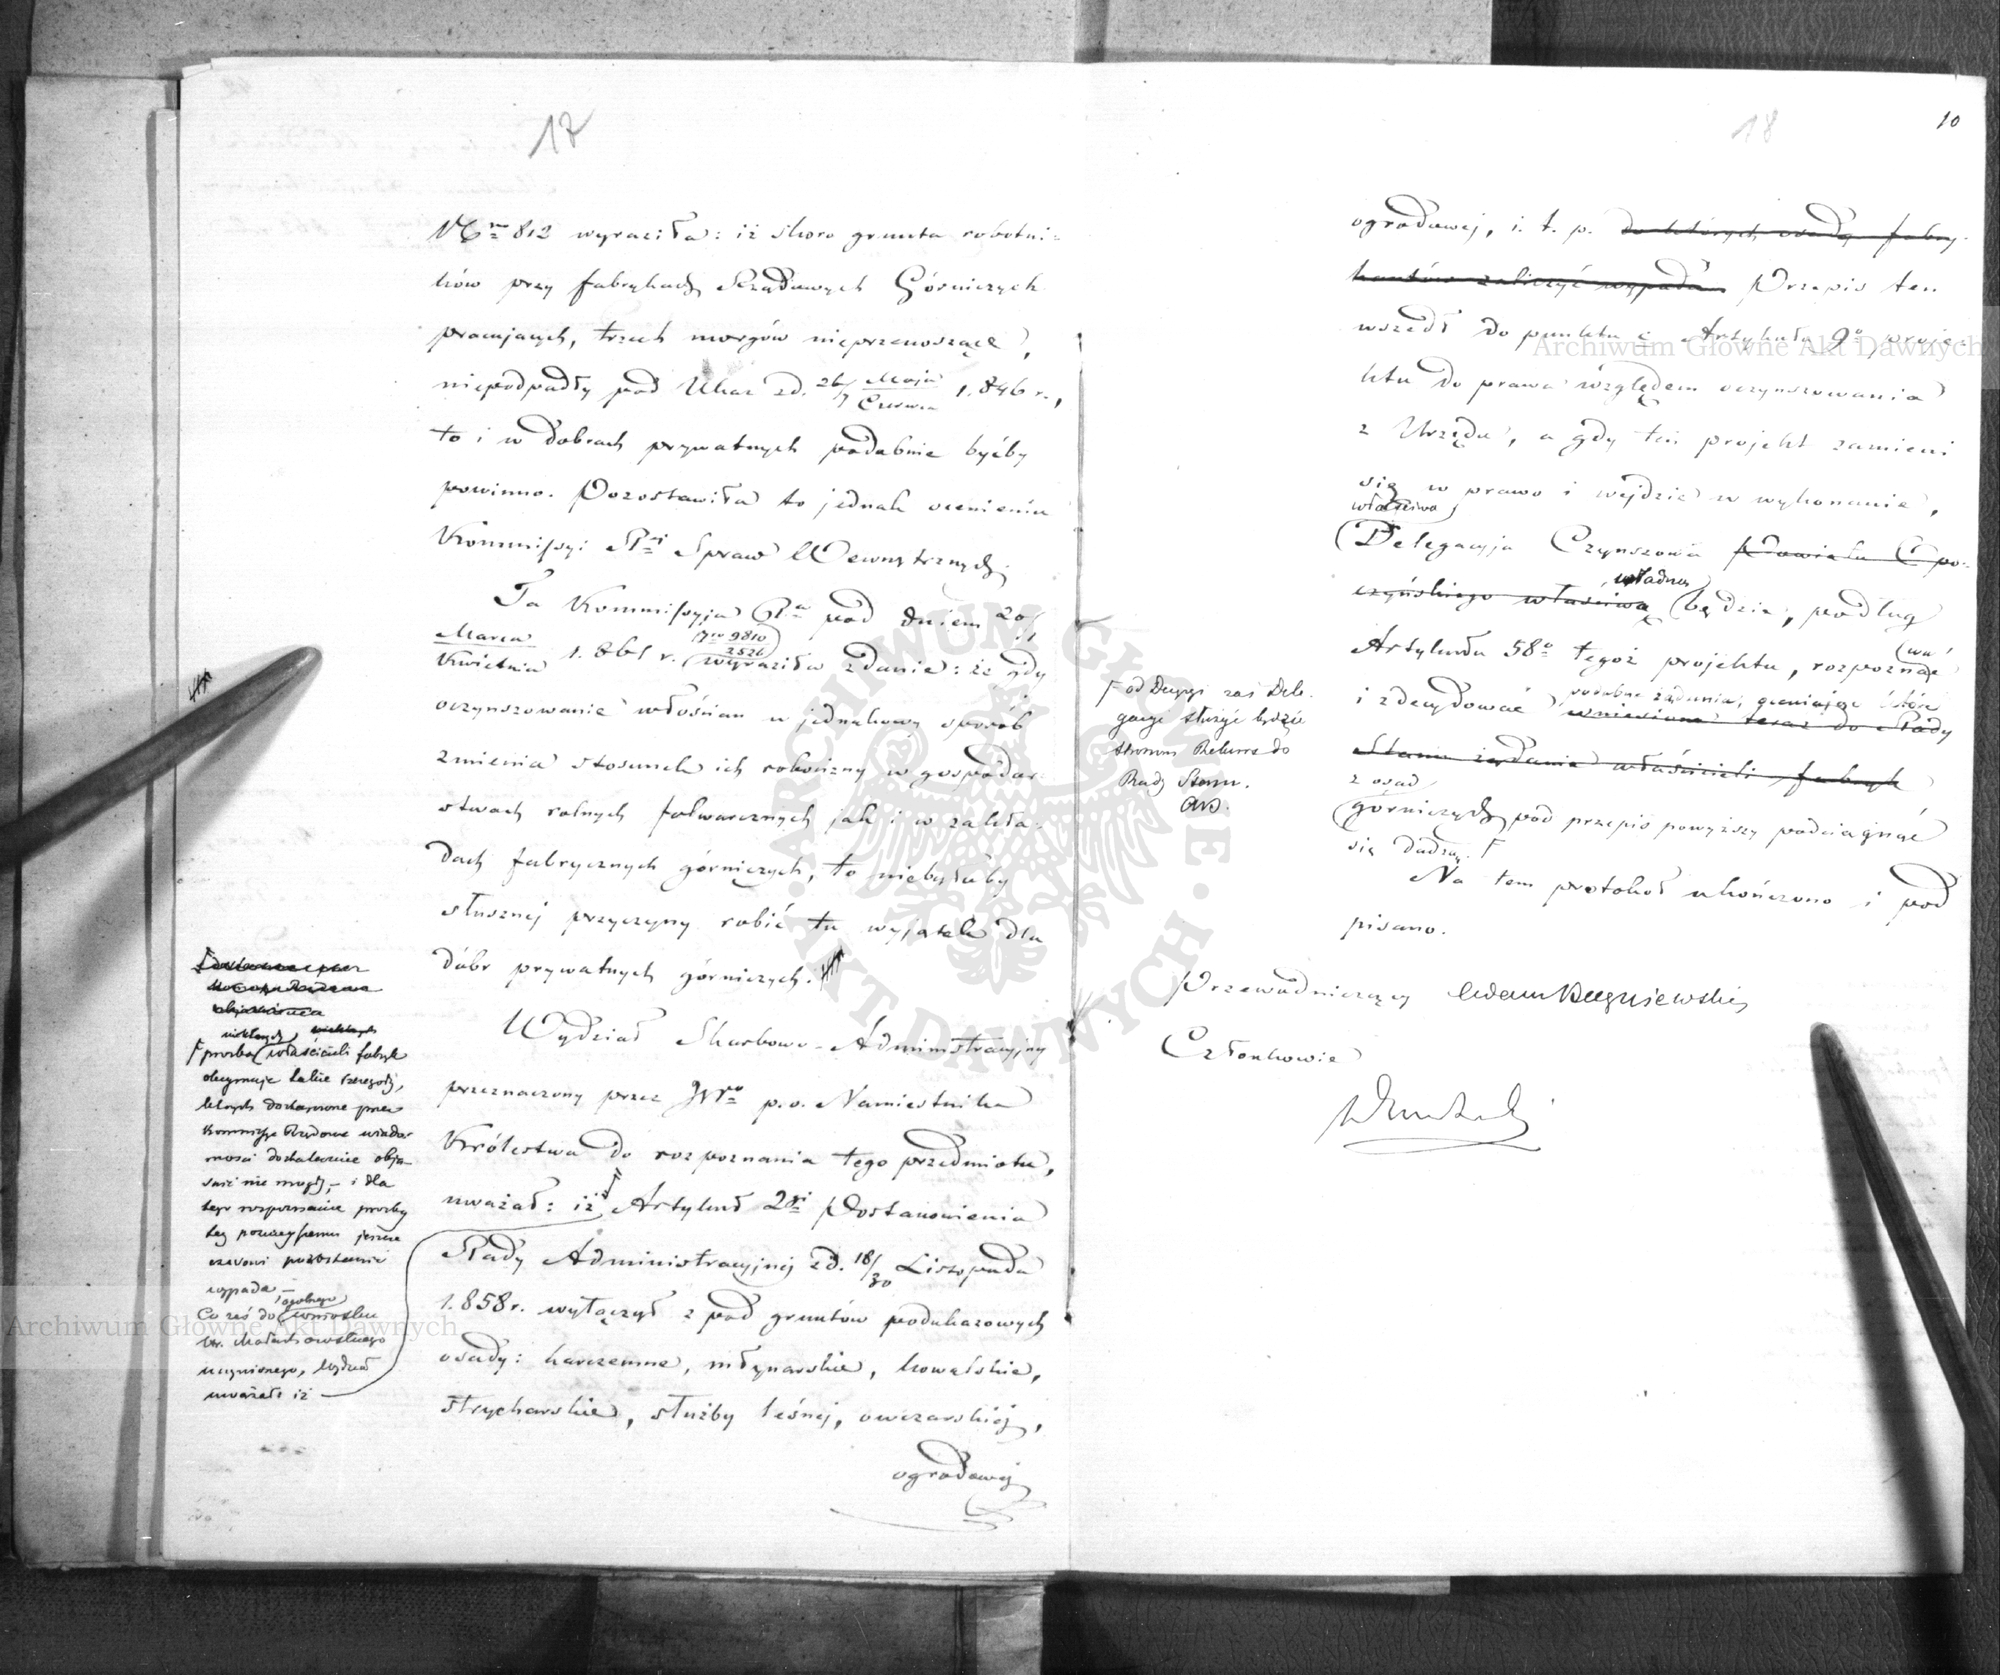 17
Nrm 812 wyraziła: iż skoro grunta robotni-
ków przy fabrykach Rządowych Górniczych
pracujących, trzech morgów nieprzenoszące,
niepodpadły pod Ukaz z d. 26/7 Maja/Czerwca 1.846 r.,
to i w dobrach prywatnych podobnie byćby
powinno. Pozostawiła to jednak ocenieniu
Kommissyi Rwéj Spraw Wewnętrznych.
Ta Kommissyja Rwa pod dniem 20/1
Marca/Kwietnia 1.861 r. (Nro 9810/2526) wyraziła zdanie: że gdy
oczynszowanie włościan w jednakowy sposób
zmienia stosunek ich robocizny w gospodar-
stwach rolnych folwarcznych jak i w zakła-
dach fabrycznych górniczych, to niebyłoby
słusznej przyczyny robić tu wyjątek dla
dóbr prywatnych górniczych.
Wydział Skarbowo-Administracyjny
przeznaczony przez JWgo p.o. Namiestnika
Królestwa do rozpoznania tego przedmiotu,
uważał: iż Artykuł 2gi Postanowienia
Rady Administracyjnej z d. 18/30 Listopada
1.858 r. wyłączył z pod gruntów podukazowych
osady: karczemne, młynarskie, kowalskie,
strycharskie, służby leśnej, owczarskiéj,
ogrodowej
prośba właścicieli fabryk
obejmuje takie szczegóły,
których dostarczone przez
Kommissye Rządowe wiado-
mości dostatecznie obja-
śnić nie mogły, – i dla
tego rozpoznanie prośby
tej późniejszemu jeszcze
czasowi pozostawić
wypada –
Co zaś do ogólnego wniosku
Hr. Małachowskiego
uczynionego, Wydział
uważał iż
18
10
ogrodowej, i. t. p. do których osady fabry-
kantów zaliczyć wypada. Przepis ten
wszedł do punktu c Artykułu 9o, proje-
ktu do prawa względem oczynszowania
z Urzędu, a gdy ten projekt zamieni
się w prawo i wejdzie w wykonanie,
właściwa
Delegacyja Czynszowa Powiatu Opo-
czyńskiego właściwą władną będzie, podług
Artykułu 58o tegoż projektu, rozpoznać
i zdecydować podobne żądania, oceniając które
wniesione teraz do Rady
Stanu żądanie właścicieli fabryk
z osad
górniczych pod przepis powyższy podciągnąć
się dadzą.
od Decyzyi zaś Dele-
gacyi służyć będzie
stronom Rekurs do
Rady Stanu.
Na tem protokół ukończono i pod
pisano.
Przewodniczący
Członkowie
Archiwum Główne Akt Dawnych
Archiwum Główne Akt Dawnych
ARCHIWUM GŁÓWNE AKT DAWNYCH